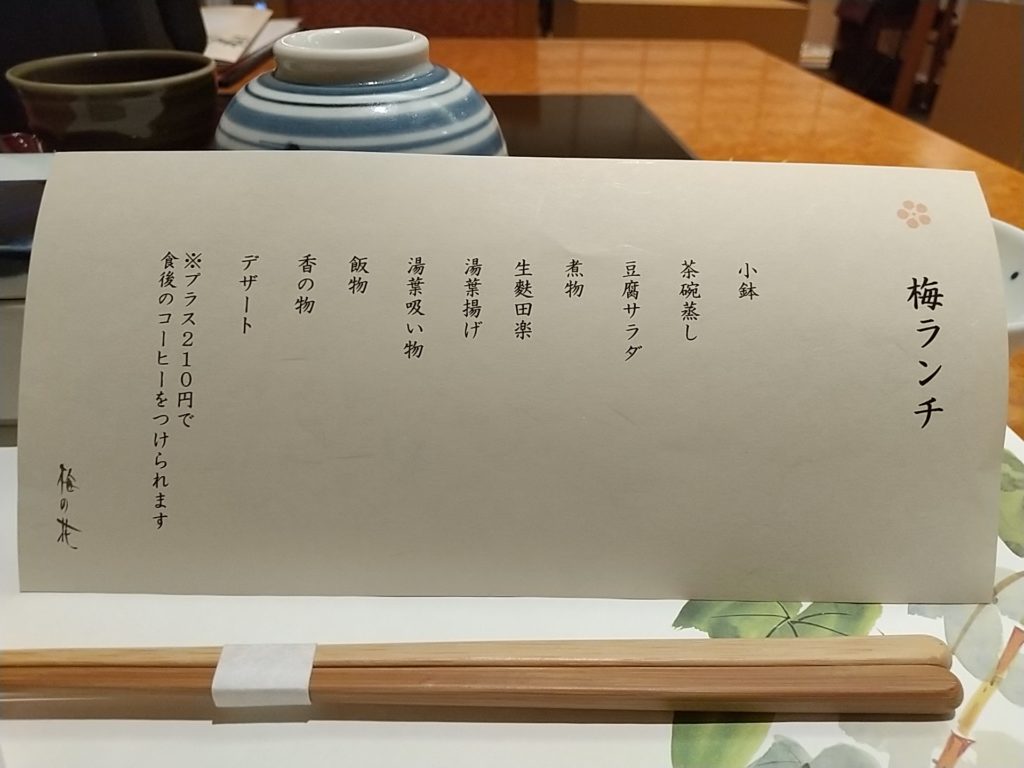 梅ランチ
小鉢
茶碗蒸し
豆腐サラダ
煮物
生麩田楽
湯葉揚げ
湯葉吸い物
飯物
香の物
デザート
※プラス２１０円で
食後のコーヒーをつけられます
梅の花